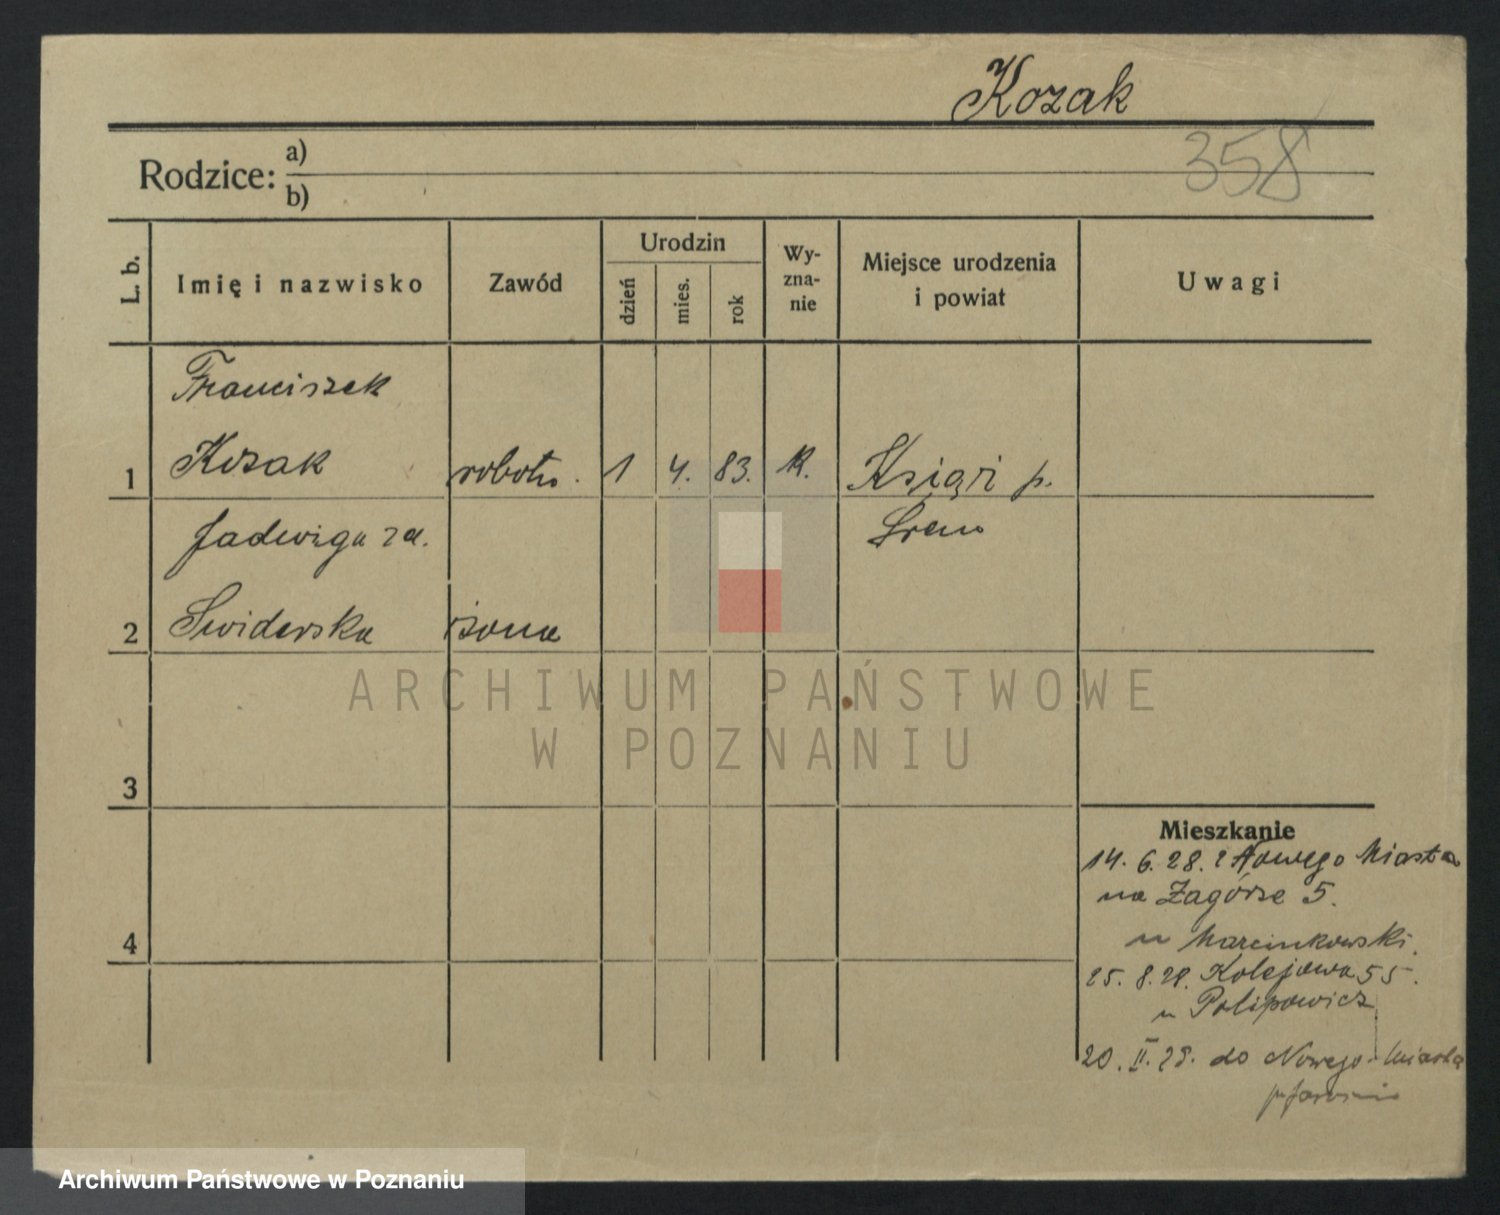 Kozak
358
Rodzice: a)
b)
L. b.
Imię i nazwisko
Zawód
Urodzin
dzień
mies.
rok
Wy-
zna-
nie
Miejsce urodzenia
i powiat
Uwagi
Franciszek
1 Kozak robotn. 1 4. 83. k. Książ p.
Jadwiga za. Śrem
2 Swiderska żona
3
4
Mieszkanie
14. 6. 28. z Nowego Miasta
na Zagórze 5.
u Marcinkowski.
25. 8. 28. Kolejowa 55.
u Polipowicz
20. II. 29. do Nowego Miasta
p. Jarocin
ARCHIWUM PAŃSTWOWE
W POZNANIU
Archiwum Państwowe w Poznaniu